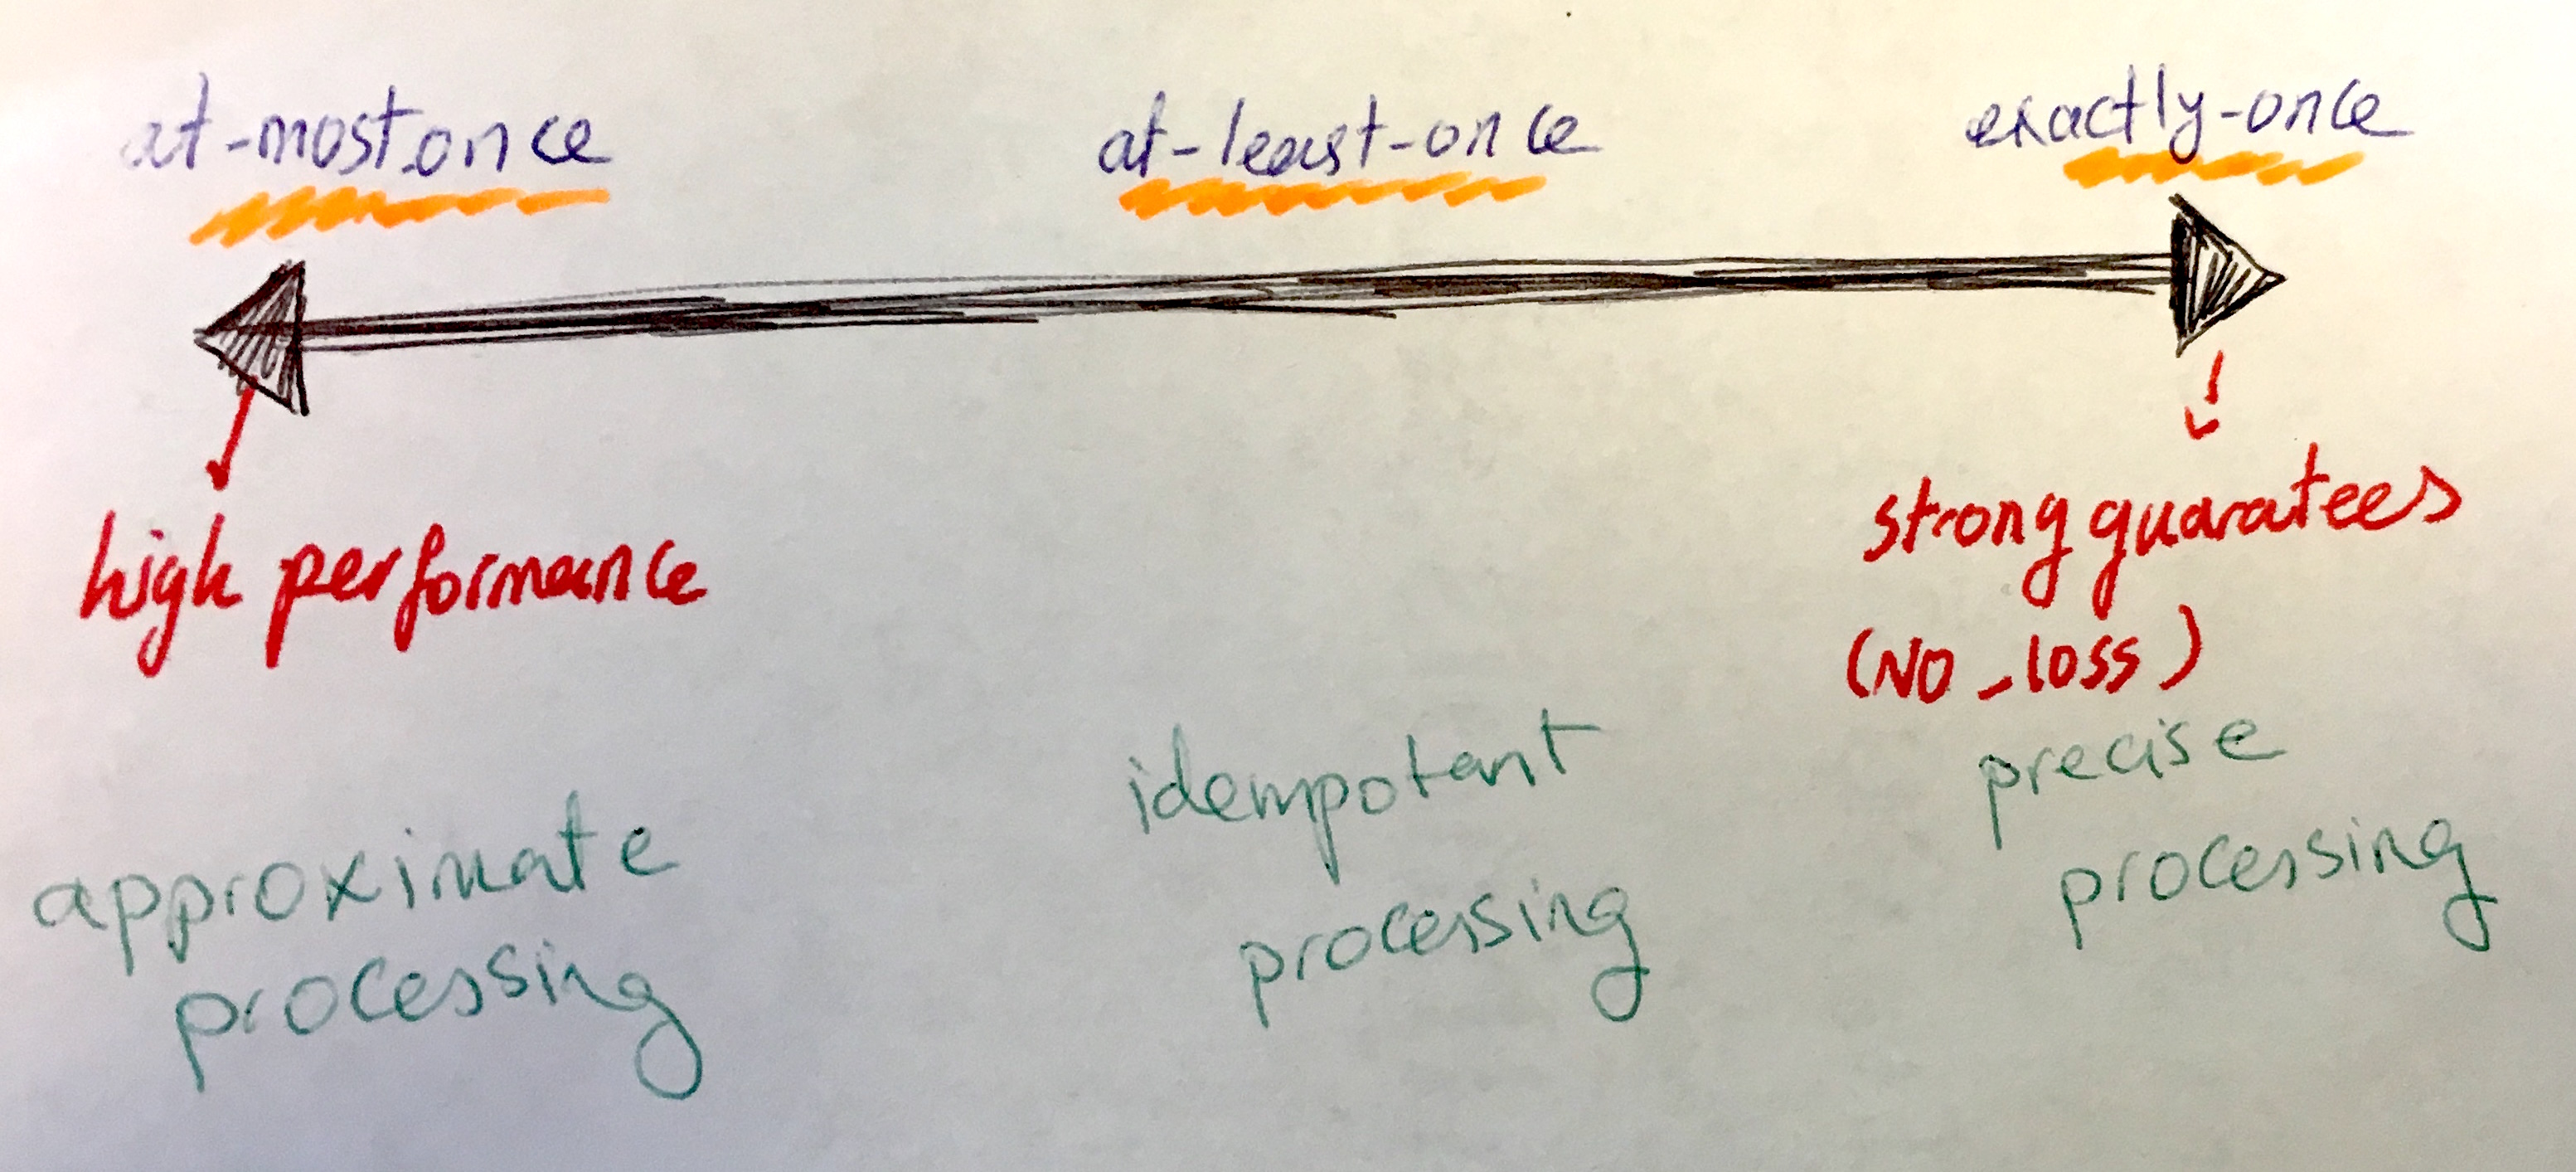 at-most-once
at-least-once
exactly-once
high performance
strong guaratees
(NO-loss)
approximate
processing
idempotant
processing
precise
processing